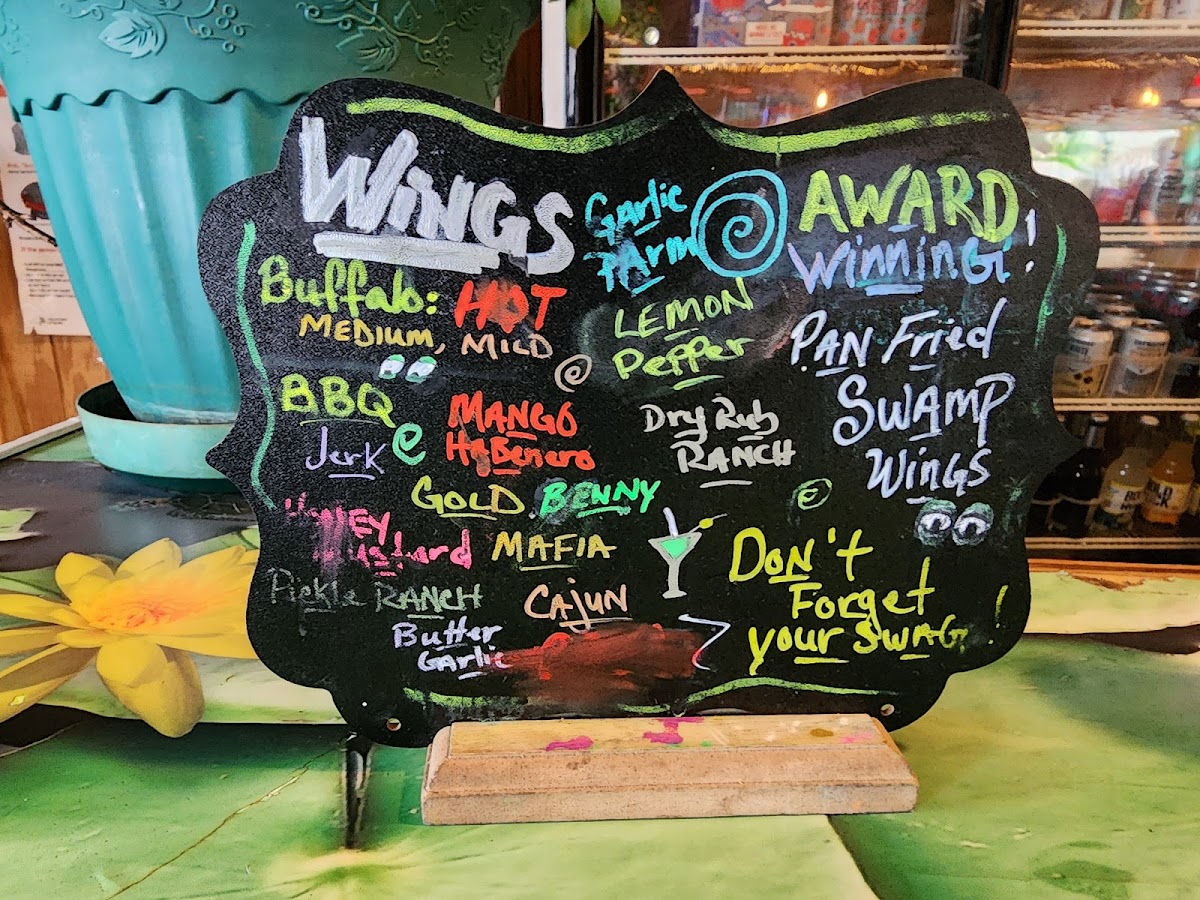 WINGS
Buffalo: HOT
MEDIUM, MILD
BBQ
Jerk
MANGO
HABenero
GOLD BENNY
HONEY
Mustard
MAFIA
Pickle RANCH
CAjUN
Butter
Garlic
GArlic
PArm
LEMON
Pepper
Dry Rub
RANCH
AWARD
WinninG!
PAN Fried
SWAMP
WiNGS
DON't
Forget
your SWAG!